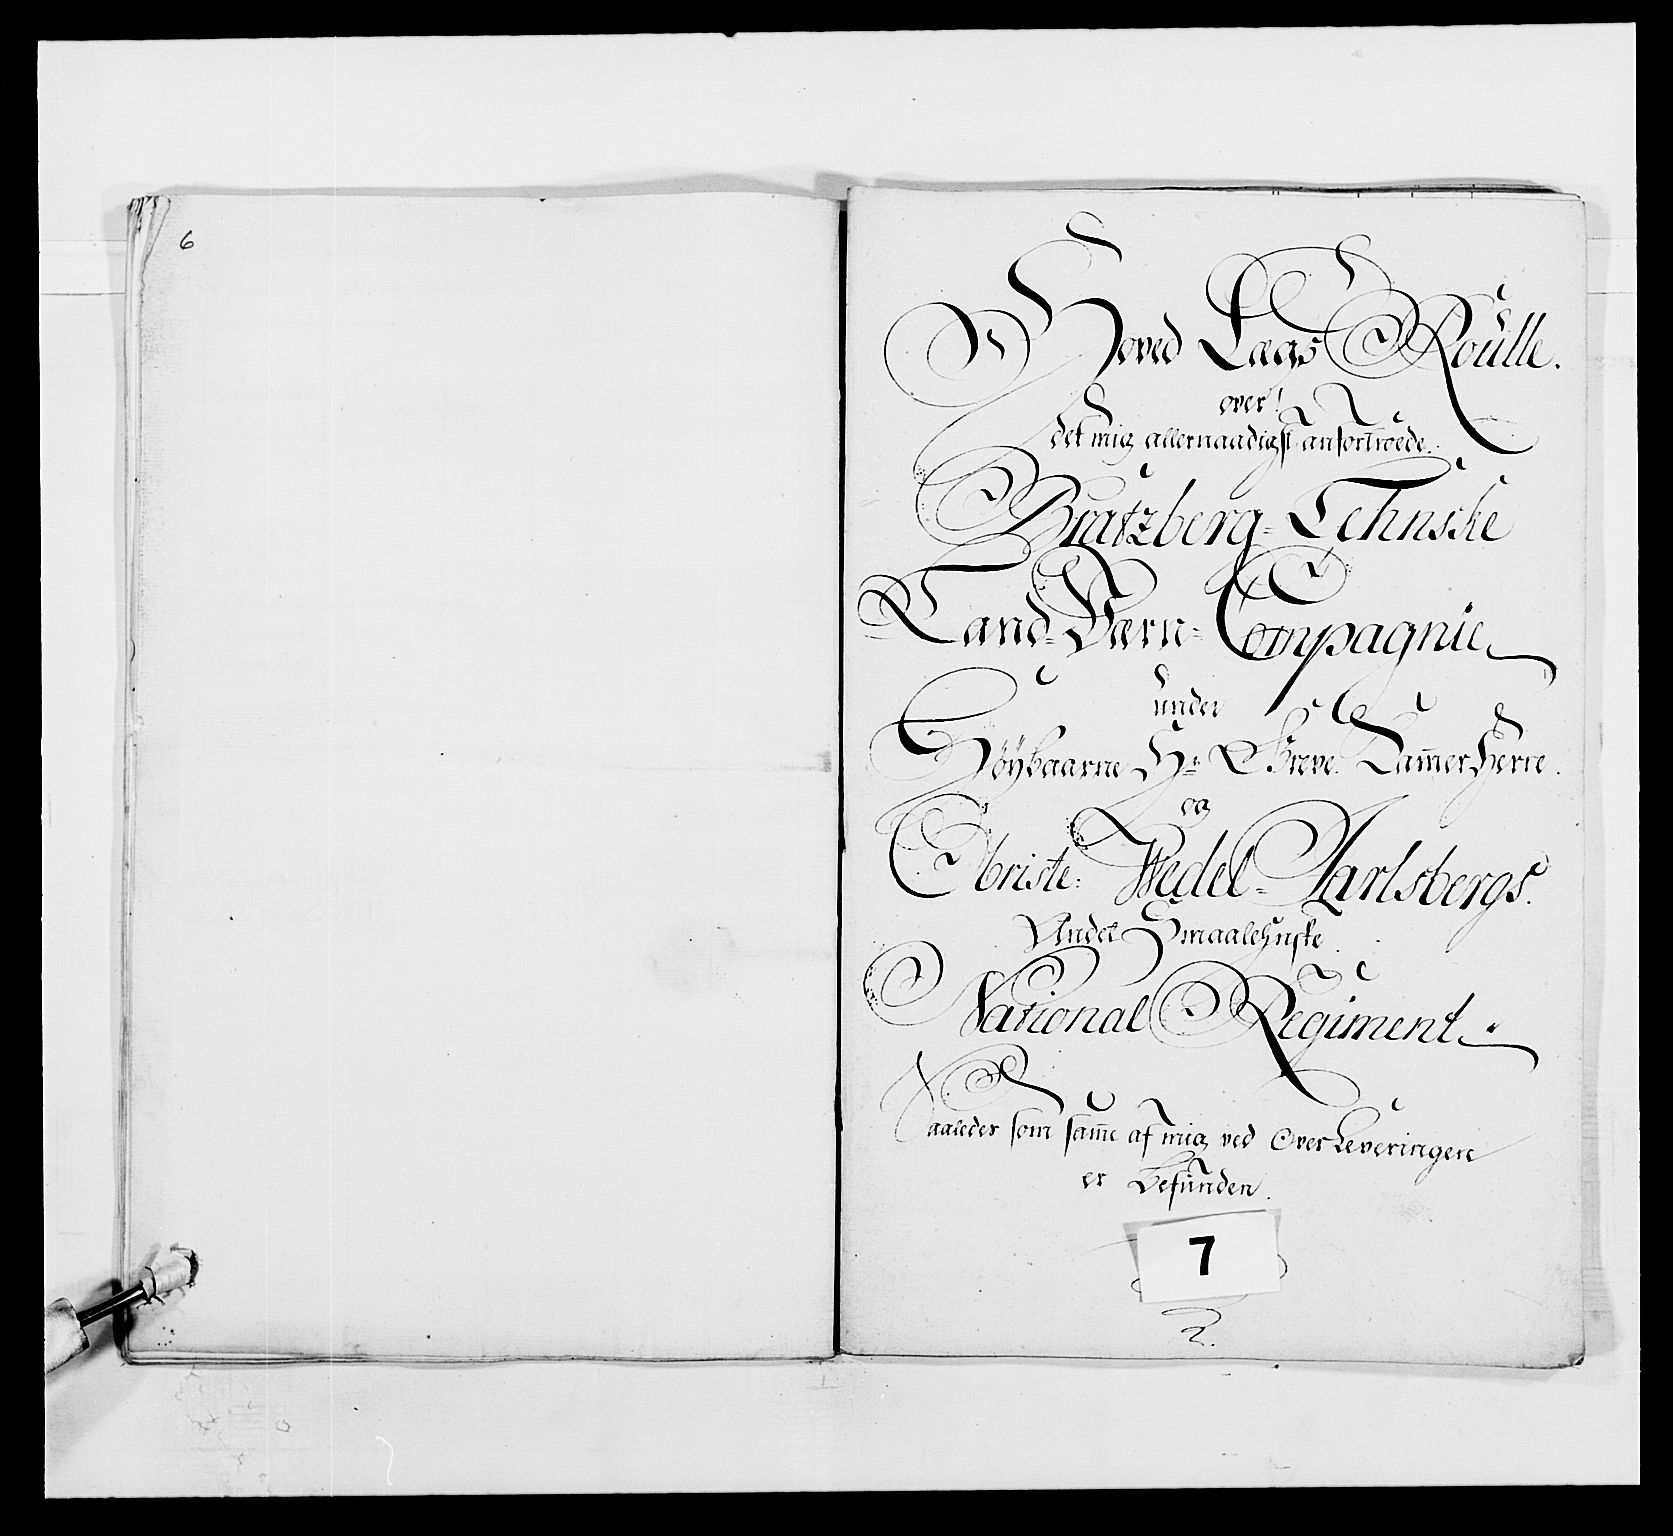 6
Hoved Lægs Roulle.
over!
det mig allernaadigst anfortroede.
Bratzberg-Lehnske
Land-Værn-Compagnie
under
Höybaarne Hr Greve. Cam̅er Herre.
og
Obriste: Wedel-Jarlsbergs.
Andet Smaalehnske
National Regiment
Saaledes som sam̅e af mig ved OverLeveringen
er Befunden.
7